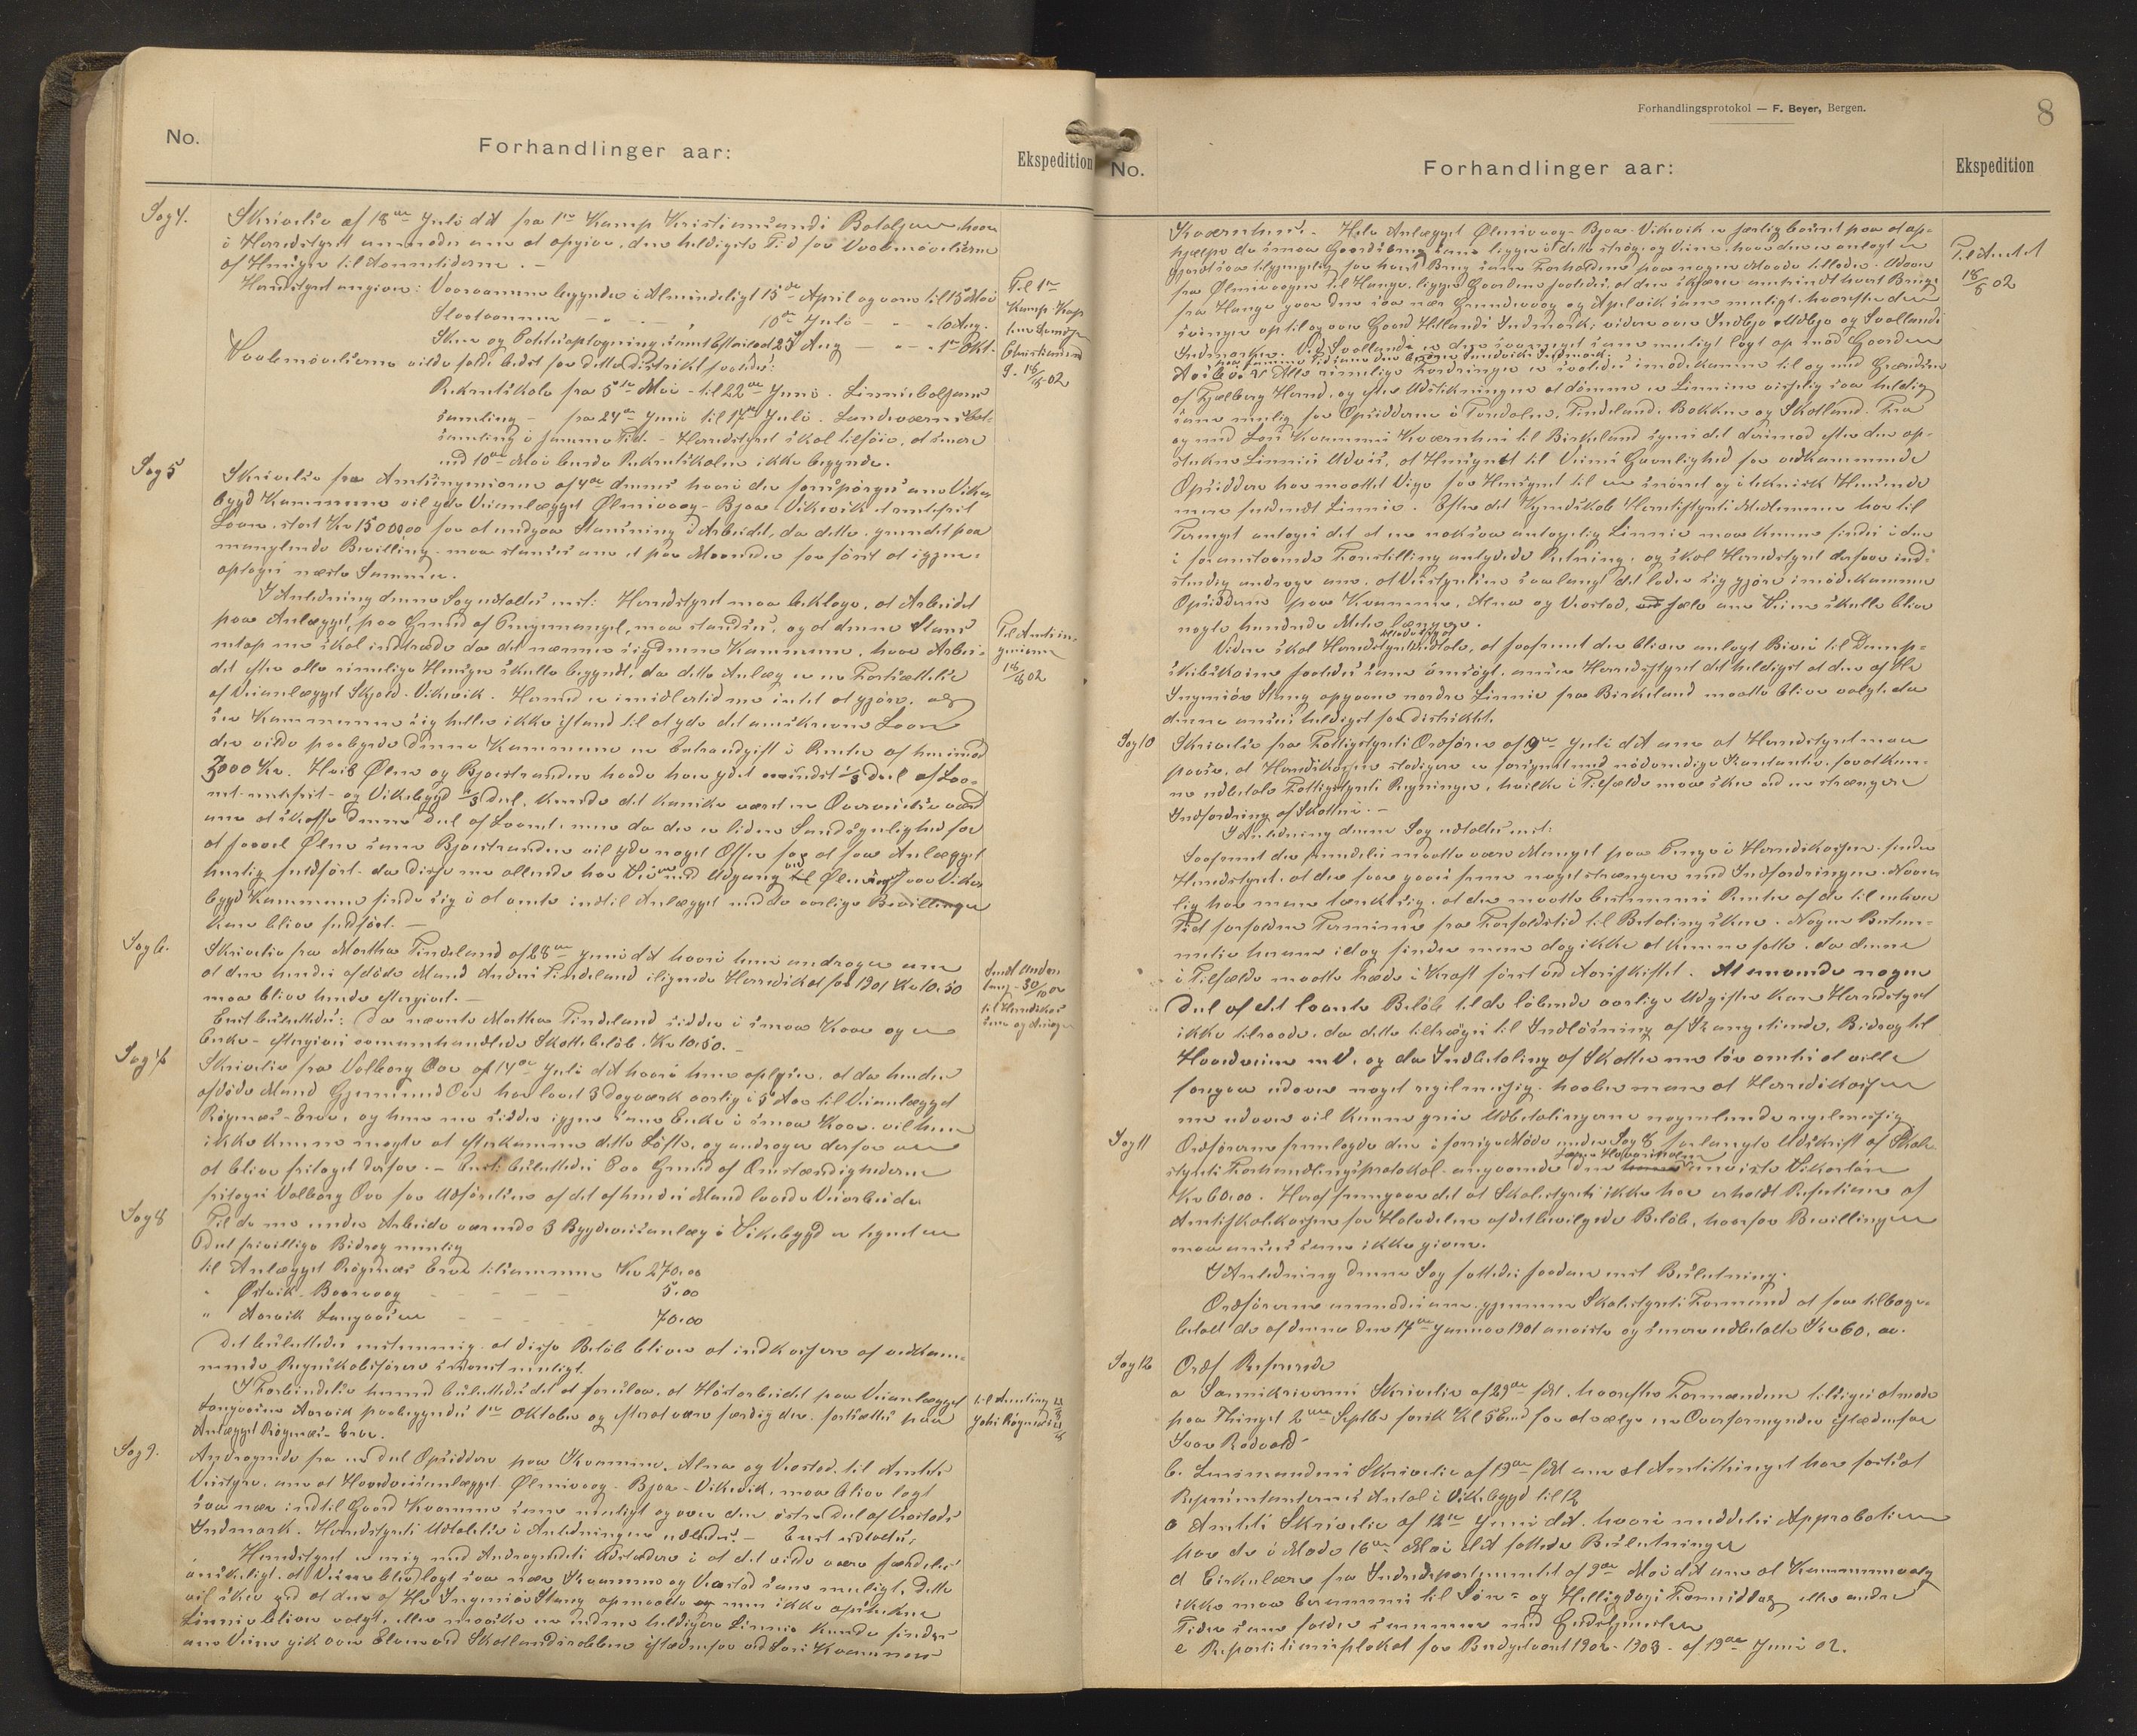 No.
Forhandlinger aar:
Ekspedition
Sag 4.
Skrivelse af 18de Juli d.A. fra 1ste Komp Kristiansands Bataljon hvori
i Herredstyret anmodes om at opgive, den heldigste Tid for Vaabenøvelserne
af Hensyn til Aonnetiderne. -
Herredstyret angiver: Vaaraonnen begynder i Almindeligt 15de April og varer til 15 Mai
Slaataonnen - " - - " 10de Juli - " - 10 Aug.
Skur og Potetesoptagning samt 25de Aug - " - 1ste Okt.
Vaabenøvelserne vilde falde bedst for dette Distrikt saaledes:
Rekrutskole fra 5te Mai - til 22de Juni. Linniebatjons
samling - fra 24de Juni til 17de Juli. Landeværnsbat-
samling i samme Tid. - Herredstyret skal tilføie, at senere
end 10de Mai burde Rekrutskolen ikke begynde.
Til 1ste
Komp. Krist
Christiansand
g. 18/8 02
Sag 5
Skrivelse fra Amtsingeniøren af 4de dennes hvori der forespørges om Vike-
bygd Kommune vil yde Veianlægget Ølensvaag - Bjoa - Vikevik et rentefrit
Laan, stort Kr 15000,00 for at undgaa Stansning i Arbeidet, da dette, grundet paa
manglende Bevilling, maa stanses om et par Maaneder for først at igjen-
optages næste Sommer.
I Anledning denne Sag udtaltes enst: Herredstyret maa beklage, at Arbeidet
paa Anlægget, paa Grund af Pengemangel, maa standses, og at denne Stans
netop nu skal indtræde da det nærmer sig denne Kommune, hvor Arbei-
det efter alle rimelige Hensyn skulde begyndt, da dette Anlæg er en Fortsættelse
af Veianlægget Skjold-Vikevik. Hermed er imidlertid nu intet at gjøre, og
ser Kommunen sig heller ikke istand til at yde det omskrevne Laan
der vilde paabyrde denne Kommune en Extraudgift i Renter af henimod
3000 Kr. Hvis Ølen og Bjoastranden havde hver ydet mindst 1/3 deel af Laa-
net rentefrit - og Vikebygd 1/3 deel, kunde det kanske været en Overveielse værd
om at skaffe denne deel af Laanet, men da der er liden Sandsynlighed for
at saavel Ølen som Bjoastranden vil yde noget Offer for at faa Anlægget
hurtig fuldført - da disse nu allerede har Vei ved Udgang til Ølensvaag, faar Vike-
bygd Kommune finde sig i at vente indtil Anlægget med de aarlige Bevillinger
kan blive fuldført. -
Til Amtsin-
geniøren
18/8 02
Sag 6.
Skrivelse fra Martha Tindeland af 28de Juni d.A. hvori hun androger om
at den hendes afdøde Mand Anders Tindeland ilignede Herredskat for 1901 Kr 10.50
maa blive hende eftergivet. -
Enst besluttedes: Da nævnte Martha Tindeland sidder i smaa Kaar og er
Enke - eftergives ovenomhandlede Skattebeløb Kr 10.50. -
30/10 02
til Herredskas
Sag 7
Skrivelse fra Valborg Ovø af 14de Juli d.A. hvori hun oplyser, at da hendes
afdøde Mand Gjermund Ovø har lovet 3 dagværk aarlig i 5 Aar til Veianlægget
Røgnæs - Ervø, og hun nu sidder igjen som Enke i smaa Kaar vil hun
ikke kunne magte at efterkomme dette Løfte, og androger derfor om
at blive fritaget derfor. - Enst. besluttedes Paa Grund af Omstændighederne
fritages Valborg Ovø for Udførelsen af det af hendes Mand lovede Veiarbeide
Sag 8
Til de nu under Arbeide værende 3 Bygdeveisanlæg i Vikebygd er tegnet en
Deel frivillige Bidrag nemlig
til Anlægget Røgnæs Ervø tilsammen Kr 270.00
" Østvik - Baarvaag - - - - 5.00
" Aarvik Langaasen - - - - 70.00
Det besluttedes enstemmig, at disse Beløb bliver at indkassere af vedkom-
mende Regnskabsfører snarest muligt.
I Forbindelse hermed besluttedes det at foreslaa, at Høstarbeidet paa Veianlægget
Langaasen Aarvik paabegyndes 1ste Oktober og efterat være færdig der fortsættes paa
Anlægget Røgnæs - Ervø.
Sag 9.
Andragende fra en deel Opsiddere paa Kvamme, Alne og Vestad, til Amtets
Veistyre, om at Hovedveisanlægget Ølensvaag - Bjoa - Vikevik, maa blive lagt
saa nær indtil Gaard Kvamme som muligt og over den østre Deel af Vestads
Indmark. Herredstyrets Udtalelse i Anledningen udbedes. - Enst udtaltes:
Herredstyret er enig med Andragendets Udstedere i at det vilde være særdeles
ønskeligt, at Veien blev lagt saa nær Kvamme og Vestad som muligt, dette
vil skee ved at den af Hr Ingeniør Stang opmaalte og nu ikke opstukne
Linnie bliver valgt, eller maaske en endnu heldigere Linnie kunde findes
om Veien gik over Elven ved Skotlandsrabben istedenfor ved Lars Kvammens
Forhandlingsprotokol — F. Beyer, Bergen.
8
No.
Forhandlinger aar:
Ekspedition
Kværnhus. Hele Anlægget Ølensvaag - Bjoa - Vikevik er særlig basert paa at op-
hjælpe de smaa Gaardsbrug som ligger i dette strøg og Veien, hvor den er anlagt er
gjort saa tilgjengelig for hvert Brug som Forholdene paa nogen Maade tillader. Udover
fra Ølensvaagen til Hauge, ligger Gaardene saaledes, at den skjærer omtrindt hvert Brug;
fra Hauge gaar den saa nær Grundevaag og Apelvik som muligt, hvorefter den
svinger op til og over Gaard Hetlands Indmark; videre over Indbjo, Udbjo og Svollands
Indmarker. Ved Svollands er den saavidt som muligt lagt op mod Gaarden
Aasbø. Alle rimelige Fordringer er saaledes imødekomne til og med Grændsen
af Fjælberg Herred, og efter Udstikningen at dømme er Linnien visselig saa heldig
som mulig for Opsidderne i Tindeland, Bakken og Skotland. Fra
og med Lars Kvammes Kværnhus til Birkeland synes det derimod efter den op-
stukne Linnies Udvis, at Hensynet til Veiens Gavnlighed for vedkommende
Opsiddere har maattet vige for Hensynet til en snorret og i teknisk Henseende
mere fuldendt Linnie. Efter det Kjendskab Herredstyrets Medlemmer har til
Terrænget antages det at en noksaa antagelig Linnie maa kunne findes i den
i foranstaaende Fremstilling antydede Retning, og skal Herredstyret derfor ind-
stændig andrage om, at Veistyrelsen saalangt det lader sig gjøre imødekommer
Opsidderne paa Kvamme, Alne og Vestad, selv om Veien skulde blive
nogle hundrede Meter længere.
Videre skal Herredstyret udtale, at saafremt der bliver anlagt Bivei til Damp-
skibskaien saaledes som ønsket, anser Herredstyret det heldigst at den af Hr
Ingeniør Stang opgaaede nordre Linnie fra Birkeland maatte blive valgt, da
denne ansees heldigst for distriktet.
Til Amtet
18/8 02
Sag 10
Skrivelse fra Fattigstyrets Ordfører af 9de Juli d.A. om at Herredstyret maa
paase, at Herredskassen stadigen er forsynet med nødvendige Kontanter, for at kun-
ne udbetale Fattigstyrets Regninger, hvilket i Tilfælde maa ske ved en strængere
Indfordring af Skatten. -
I Anledning denne Sag udtaltes enst:
Saafremt der fremdeles maatte være Mangel paa Penge i Herredskassen, finder
Herredstyret, at der faar gaaes frem noget strængere med Indfordringen. Navn-
lig har man tænkt sig, at der maatte bestemmes Renter af de til enhver
Tid forfaldne Terminer fra Forfaldstid til Betaling sker. Nogen Bestem-
melse herom idag finder man dog ikke at kunne fatte, da denne
i Tilfælde maatte træde i Kraft først ved Aarsskiftet. At anvende nogen
Deel af det laante Beløb til de løbende aarlige Udgifter kan Herredstyret
ikke tilraade, da dette tiltrænges til Indløsning af Bidrag til
Hovedveien m.V. og da Indbetaling af Skatten nu lær antas at ville
foregaa udover noget regelmessig, haaber man at Herredskassen
nu udover vil kunne greie Udbetalingerne nogenlunde regelmessig
Sag 11
Ordføreren fremlagde den i forrige Møde under Sag 8 forlangte Udskrift af Skole-
styrets Forhandlingsprotokol angaaende den anviste Vikarløn
Kr 60.00. Heraf fremgaar det at Skolestyrets ikke har erholdt Refusion af
Amtsskolekassen for Halvdelen af det bevilgede Beløb, hvorfor Bevillingen
maa ansees som ikke given.
I Anledning denne Sag fattedes saadan enst Beslutning:
Ordføreren anmodes om gjennem Skolestyrets Formand at faa tilbage-
betalt de af denne den 17de Januar 1901 anviste og senere udbetalte Kr 60.00.
Sag 12
Ordf Refererede
a Sorenskriverens Skrivelse af 29de f.M. hvorefter Formændene tilsiges at møde
paa Thinget 2den Septbr førstk Kl 5 Emd for at vælge en Overformynder istedenfor
Ivar Rødvold
b. Lensmandens Skrivelse af 19de f.M. om at Amtsthinget har fastsat
Repræsentanternes Antal i Vikebygd til 12
c Amtets Skrivelse af 12te Juni d.A. hvori meddeles Approbation
paa de i Møde 16de Mai d.A. fattede Beslutninger
d Cirkulære fra Indredepartementet af 2de Mai d.A. om at Kommunevalg
ikke maa berammes til Søn- og Helligdags Formiddag eller andre
Tider som falder sammen med Gudstjenesten
e Repartitionsplakat for Budgetaaret 1902-1903 - af 19de Juni 02.